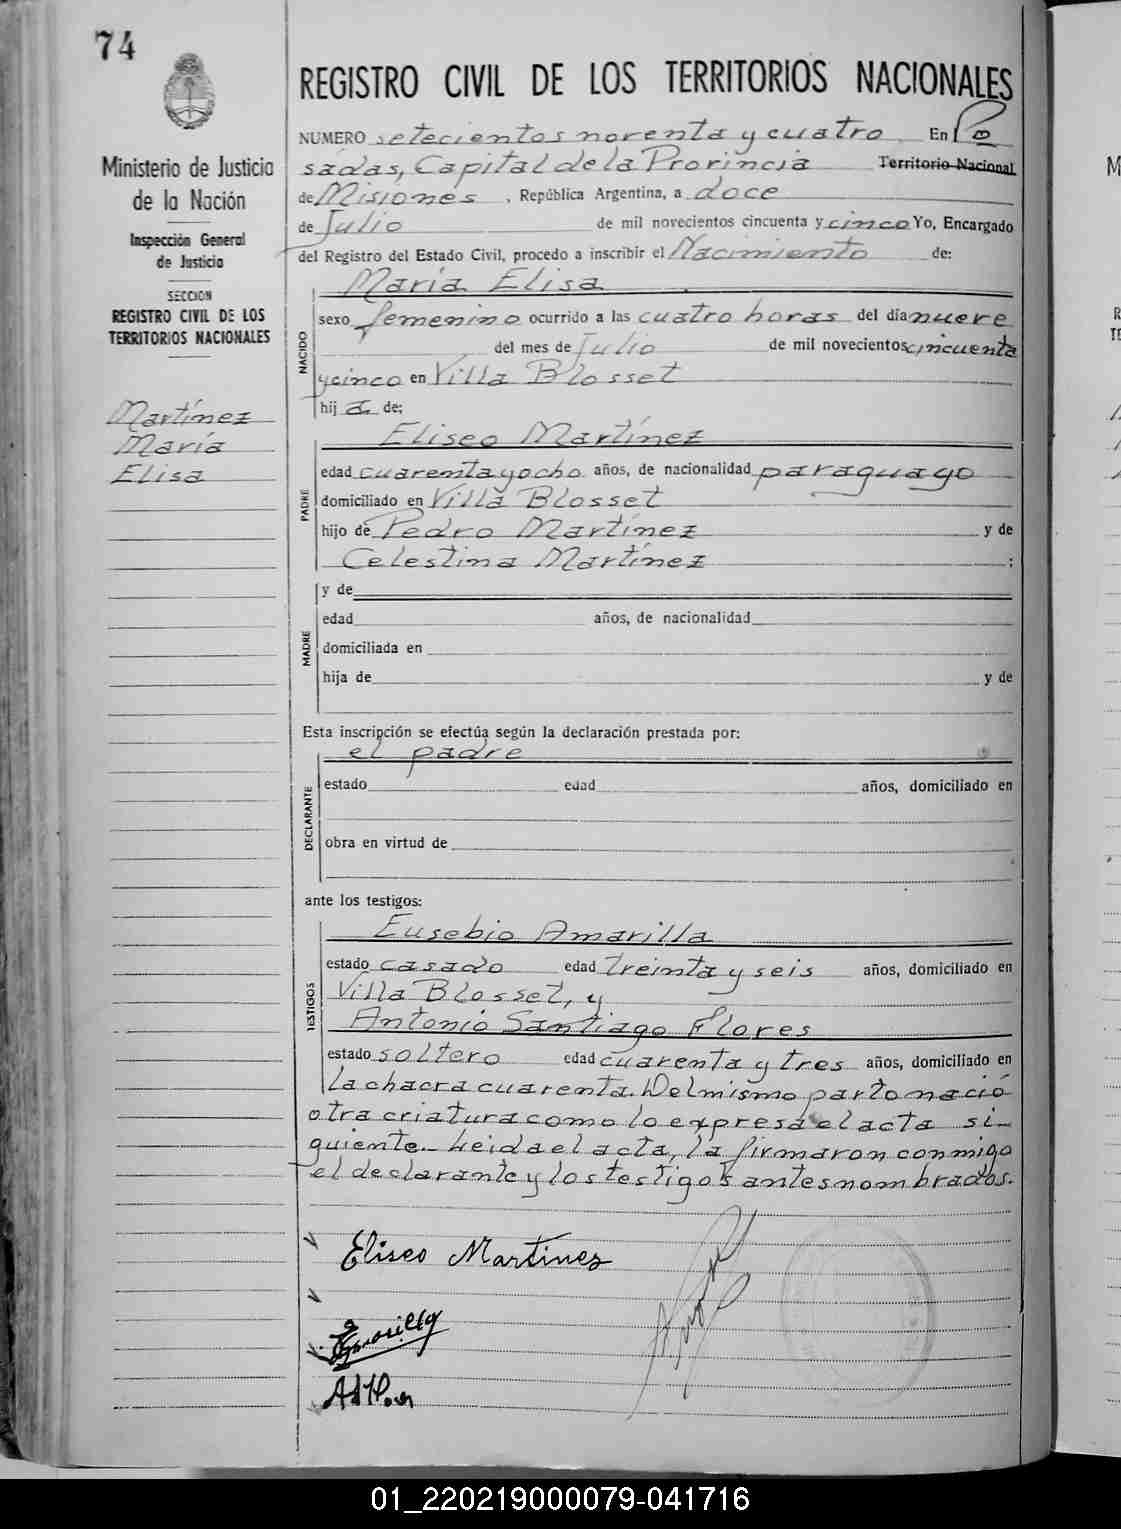 74
REGISTRO CIVIL DE LOS TERRITORIOS NACIONALES
Ministerio de Justicia
de la Nación
Inspección General
de Justicia
SECCION
REGISTRO CIVIL DE LOS
TERRITORIOS NACIONALES
Martínez
María
Elisa
NUMERO setecientos noventa y cuatro En Po
sadas, Capital de la Provincia Territorio Nacional
de Misiones, República Argentina, a doce
de Julio de mil novecientos cincuenta y cinco Yo, Encargado
del Registro del Estado Civil, procedo a inscribir el Nacimiento de:
NACIDO
María Elisa
sexo femenino ocurrido a las cuatro horas del día nueve
del mes de Julio de mil novecientos cincuenta
y cinco en Villa Blosset
hija de:
PADRE
Eliseo Martínez
edad cuarenta y ocho años, de nacionalidad paraguayo
domiciliado en Villa Blosset
hijo de Pedro Martínez y de
Celestina Martínez ;
MADRE
y de
edad años, de nacionalidad
domiciliada en
hija de y de
Esta inscripción se efectúa según la declaración prestada por:
DECLARANTE
el padre
estado edad años, domiciliado en
obra en virtud de
ante los testigos:
TESTIGOS
Eusebio Amarilla
estado casado edad treinta y seis años, domiciliado en
Villa Blosset, y
Antonio Santiago Flores
estado soltero edad cuarenta y tres años, domiciliado en
la chacra cuarenta. Del mismo parto nació
otra criatura como lo expresa el acta si-
guiente.- Leida el acta, la firmaron conmigo
el declarante y los testigos antes nombrados.
Eliseo Martinez
01_220219000079-041716